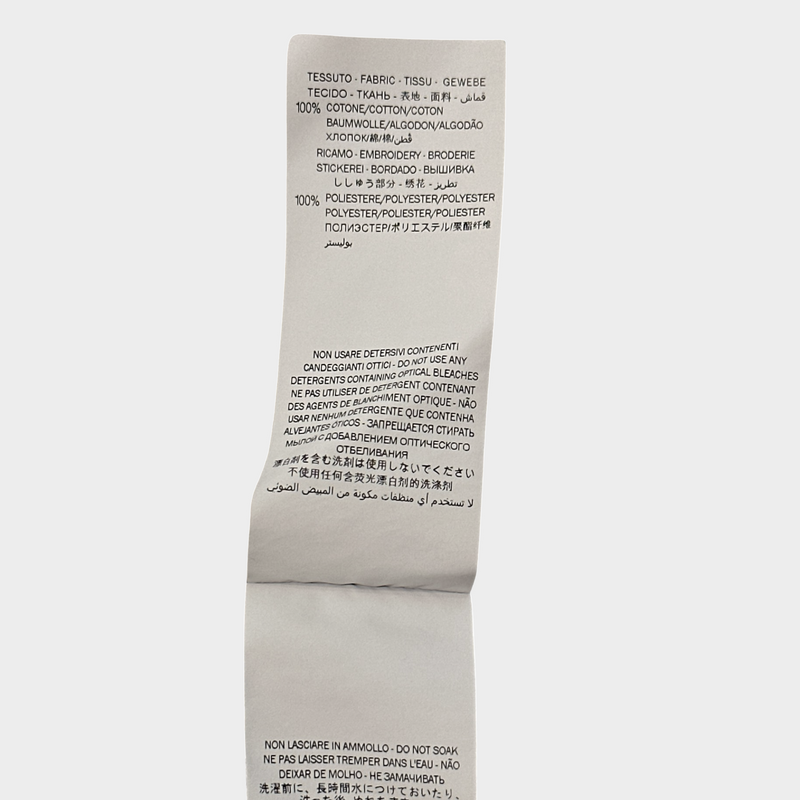 TESSUTO - FABRIC - TISSU - GEWEBE
TECIDO - ТКАНЬ - 表地 - 面料 - قماش
100% COTONE/COTTON/COTON
BAUMWOLLE/ALGODON/ALGODÃO
ХЛОПОК/綿/棉/قطن
RICAMO - EMBROIDERY - BRODERIE
STICKEREI - BORDADO - ВЫШИВКА
ししゅう部分 - 绣花 - تطريز
100% POLIESTERE/POLYESTER/POLYESTER
POLYESTER/POLIESTER/POLIESTER
ПОЛИЭСТЕР/ポリエステル/聚酯纤维
بوليستر
NON USARE DETERSIVI CONTENENTI
CANDEGGIANTI OTTICI - DO NOT USE ANY
DETERGENTS CONTAINING OPTICAL BLEACHES
NE PAS UTILISER DE DETERGENT CONTENANT
DES AGENTS DE BLANCHIMENT OPTIQUE - NÃO
USAR NENHUM DETERGENTE QUE CONTENHA
ALVEJANTES ÓTICOS - ЗАПРЕЩАЕТСЯ СТИРАТЬ
МЫЛОМ С ДОБАВЛЕНИЕМ ОПТИЧЕСКОГО
ОТБЕЛИВАНИЯ
漂白剤を含む洗剤は使用しないでください
不使用任何含荧光漂白剂的洗涤剂
لا تستخدم أي منظفات مكونة من المبيض الضوئي
NON LASCIARE IN AMMOLLO - DO NOT SOAK
NE PAS LAISSER TREMPER DANS L'EAU - NÃO
DEIXAR DE MOLHO - НЕ ЗАМАЧИВАТЬ
洗濯前に、長時間水につけておいたり、